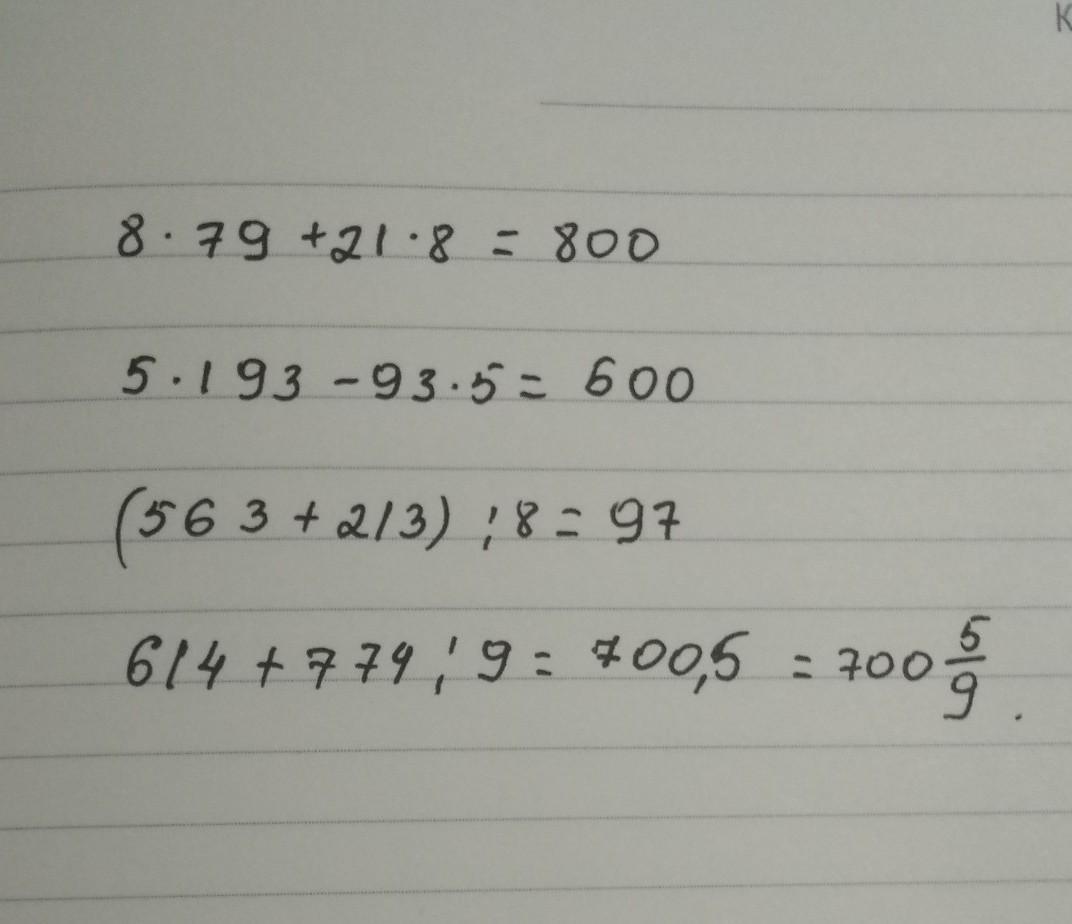 K
8·79+21·8=800
5·193-93·5=600
(563+213):8=97
614+779:9=700,5=700 5/9.